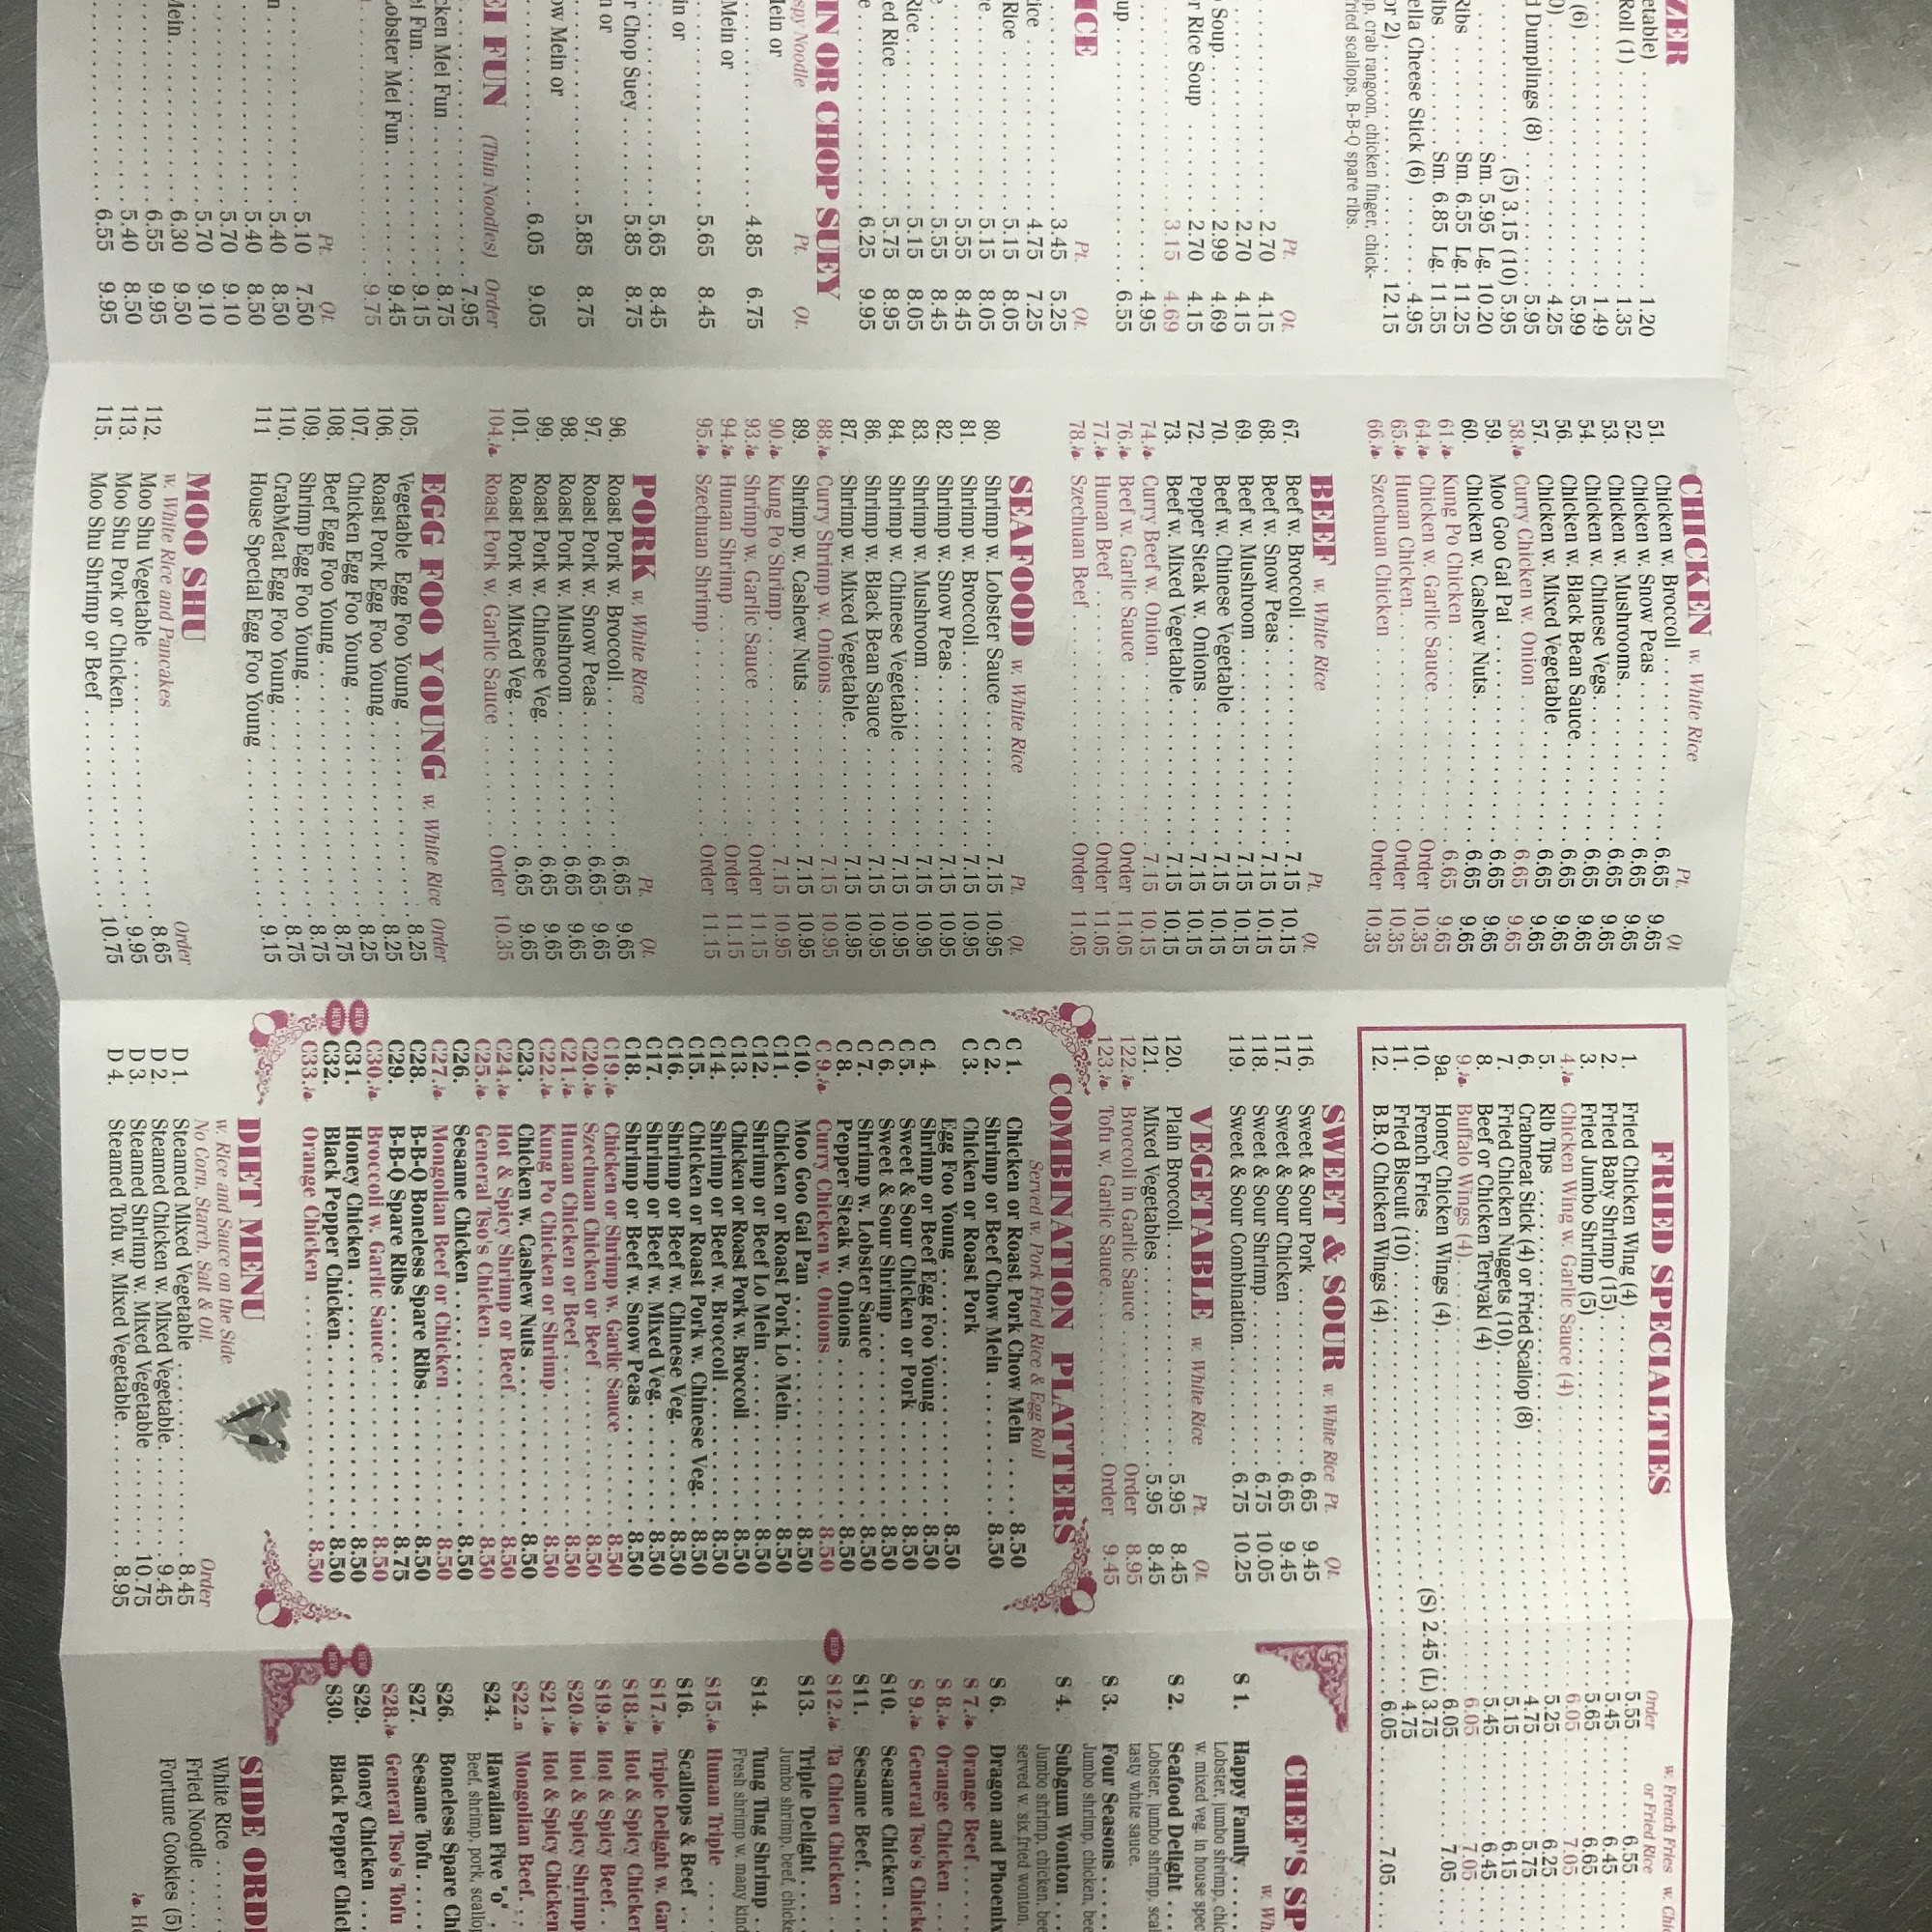 ZER
etable) . . . . . 1.20
Roll (1) . . . . . 1.35
. . . . . 1.49
(6) . . . . . 5.99
. . . . . 4.25
d Dumplings (8) . . . . . 5.95
. . . (5) 3.15 (10) 5.95
Sm. 5.95 Lg. 10.20
Ribs . . . . . Sm. 6.55 Lg. 11.25
ibs . . . . . Sm. 6.85 Lg. 11.55
ella Cheese Stick (6) . . . . . 4.95
or 2) . . . . . 12.15
p, crab rangoon, chicken finger, chick-
fried scallops, B-B-Q spare ribs.
Pt. Qt.
. . . . . 2.70 4.15
. . . . . 2.70 4.15
Soup . . . . . 2.99 4.69
r Rice Soup . . . . . 2.70 4.15
. . . . . 3.15 4.69
. . . . . 4.95
up . . . . . 6.55
ICE
Pt. Qt.
. . . . . 3.45 5.25
ice . . . . . 4.75 7.25
Rice . . . . . 5.15 8.05
ce . . . . . 5.15 8.05
. . . . . 5.55 8.45
e . . . . . 5.55 8.45
Rice . . . . . 5.15 8.05
ed Rice . . . . . 5.75 8.95
e . . . . . 6.25 9.95
IN OR CHOP SUEY
spy Noodle Pt. Qt.
lein or
. . . . . 4.85 6.75
Mein or
. . . . . 5.65 8.45
in or
. . . . . 5.65 8.45
r Chop Suey . . . . . 5.85 8.75
n or
. . . . . 5.85 8.75
ow Mein or
. . . . . 6.05 9.05
EI FUN (Thin Noodles) Order
. . . . . 7.95
cken Mei Fun . . . . . 8.75
ei Fun . . . . . 9.15
Lobster Mei Fun . . . . . 9.45
. . . . . 9.75
Pt. Qt.
. . . . . 5.10 7.50
n . . . . . 5.40 8.50
. . . . . 5.40 8.50
. . . . . 5.70 9.10
. . . . . 5.70 9.10
Mein . . . . . 6.30 9.50
. . . . . 6.55 9.95
. . . . . 5.40 8.50
. . . . . 6.55 9.95
CHICKEN w. White Rice Pt. Qt
51. Chicken w. Broccoli . . . . . 6.65 9.65
52. Chicken w. Snow Peas . . . . . 6.65 9.65
53. Chicken w. Mushrooms . . . . . 6.65 9.65
54. Chicken w. Chinese Vegs . . . . . 6.65 9.65
56. Chicken w. Black Bean Sauce . . . . . 6.65 9.65
57. Chicken w. Mixed Vegetable . . . . . 6.65 9.65
58. Curry Chicken w. Onion . . . . . 6.65 9.65
59. Moo Goo Gai Pai . . . . . 6.65 9.65
60. Chicken w. Cashew Nuts . . . . . 6.65 9.65
61. Kung Po Chicken . . . . . 6.65 9.65
64. Chicken w. Garlic Sauce . . . . . Order 10.35
65. Hunan Chicken . . . . . Order 10.35
66. Szechuan Chicken . . . . . Order 10.35
BEEF w. White Rice Pt. Qt.
67. Beef w. Broccoli . . . . . 7.15 10.15
68. Beef w. Snow Peas . . . . . 7.15 10.15
69. Beef w. Mushroom . . . . . 7.15 10.15
70. Beef w. Chinese Vegetable . . . . . 7.15 10.15
72. Pepper Steak w. Onions . . . . . 7.15 10.15
73. Beef w. Mixed Vegetable . . . . . 7.15 10.15
74. Curry Beef w. Onion . . . . . 7.15 10.15
76. Beef w. Garlic Sauce . . . . . Order 11.05
77. Hunan Beef . . . . . Order 11.05
78. Szechuan Beef . . . . . Order 11.05
SEAFOOD w. White Rice Pt. Qt.
80. Shrimp w. Lobster Sauce . . . . . 7.15 10.95
81. Shrimp w. Broccoli . . . . . 7.15 10.95
82. Shrimp w. Snow Peas . . . . . 7.15 10.95
83. Shrimp w. Mushroom . . . . . 7.15 10.95
84. Shrimp w. Chinese Vegetable . . . . . 7.15 10.95
86. Shrimp w. Black Bean Sauce . . . . . 7.15 10.95
87. Shrimp w. Mixed Vegetable . . . . . 7.15 10.95
88. Curry Shrimp w. Onions . . . . . 7.15 10.95
89. Shrimp w. Cashew Nuts . . . . . 7.15 10.95
90. Kung Po Shrimp . . . . . 7.15 10.95
93. Shrimp w. Garlic Sauce . . . . . Order 11.15
94. Hunan Shrimp . . . . . Order 11.15
95. Szechuan Shrimp . . . . . Order 11.15
PORK w. White Rice Pt. Qt.
96. Roast Pork w. Broccoli . . . . . 6.65 9.65
97. Roast Pork w. Snow Peas . . . . . 6.65 9.65
98. Roast Pork w. Mushroom . . . . . 6.65 9.65
99. Roast Pork w. Chinese Veg. . . . . . 6.65 9.65
101. Roast Pork w. Mixed Veg. . . . . . 6.65 9.65
104. Roast Pork w. Garlic Sauce . . . . . Order 10.35
EGG FOO YOUNG w. White Rice Order
105. Vegetable Egg Foo Young . . . . . 8.25
106. Roast Pork Egg Foo Young . . . . . 8.25
107. Chicken Egg Foo Young . . . . . 8.25
108. Beef Egg Foo Young . . . . . 8.75
109. Shrimp Egg Foo Young . . . . . 8.75
110. CrabMeat Egg Foo Young . . . . . 8.75
111 House Special Egg Foo Young . . . . . 9.15
MOO SHU
w. White Rice and Pancakes Order
112. Moo Shu Vegetable . . . . . 8.65
113. Moo Shu Pork or Chicken . . . . . 9.95
115. Moo Shu Shrimp or Beef . . . . . 10.75
FRIED SPECIALTIES
w. French Fries w. Chic
Order or Fried Rice
1. Fried Chicken Wing (4) . . . . . 5.55 . . . . . 6.55
2. Fried Baby Shrimp (15) . . . . . 5.45 . . . . . 6.45
3. Fried Jumbo Shrimp (5) . . . . . 5.65 . . . . . 6.65
4. Chicken Wing w. Garlic Sauce (4) . . . . . 6.05 . . . . . 7.05
5. Rib Tips . . . . . 5.25 . . . . . 6.25
6. Crabmeat Stick (4) or Fried Scallop (8) . . . . . 4.75 . . . . . 5.75
7. Fried Chicken Nuggets (10) . . . . . 5.15 . . . . . 6.15
8. Beef or Chicken Teriyaki (4) . . . . . 5.45 . . . . . 6.45
9. Buffalo Wings (4) . . . . . 6.05 . . . . . 7.05
9a. Honey Chicken Wings (4) . . . . . 6.05 . . . . . 7.05
10. French Fries . . . . . (S) 2.45 (L) 3.75
11. Fried Biscuit (10) . . . . . 4.75
12. B.B.Q Chicken Wings (4) . . . . . 6.05 . . . . . 7.05
SWEET & SOUR w. White Rice Pt. Qt.
116. Sweet & Sour Pork . . . . . 6.65 9.45
117. Sweet & Sour Chicken . . . . . 6.65 9.45
118. Sweet & Sour Shrimp . . . . . 6.75 10.05
119. Sweet & Sour Combination . . . . . 6.75 10.25
VEGETABLE w. White Rice Pt. Qt.
120. Plain Broccoli . . . . . 5.95 8.45
121. Mixed Vegetables . . . . . 5.95 8.45
122. Broccoli in Garlic Sauce . . . . . Order 8.95
123. Tofu w, Garlic Sauce . . . . . Order 9.45
COMBINATION PLATTERS
Served w. Pork Fried Rice & Egg Roll
C 1. Chicken or Roast Pork Chow Mein . . . . . 8.50
C 2. Shrimp or Beef Chow Mein . . . . . 8.50
C 3. Chicken or Roast Pork
Egg Foo Young . . . . . 8.50
C 4. Shrimp or Beef Egg Foo Young . . . . . 8.50
C 5. Sweet & Sour Chicken or Pork . . . . . 8.50
C 6. Sweet & Sour Shrimp . . . . . 8.50
C 7. Shrimp w. Lobster Sauce . . . . . 8.50
C 8. Pepper Steak w. Onions . . . . . 8.50
C 9. Curry Chicken w. Onions . . . . . 8.50
C10. Moo Goo Gai Pan . . . . . 8.50
C11. Chicken or Roast Pork Lo Mein . . . . . 8.50
C12. Shrimp or Beef Lo Mein . . . . . 8.50
C13. Chicken or Roast Pork w. Broccoli . . . . . 8.50
C14. Shrimp or Beef w. Broccoli . . . . . 8.50
C15. Chicken or Roast Pork w. Chinese Veg. . . 8.50
C16. Shrimp or Beef w. Chinese Veg. . . . . . 8.50
C17. Shrimp or Beef w. Mixed Veg. . . . . . 8.50
C18. Shrimp or Beef w. Snow Peas . . . . . 8.50
C19. Chicken or Shrimp w. Garlic Sauce . . . . . 8.50
C20. Szechuan Chicken or Beef . . . . . 8.50
C21. Hunan Chicken or Beef . . . . . 8.50
C22. Kung Po Chicken or Shrimp . . . . . 8.50
C23. Chicken w. Cashew Nuts . . . . . 8.50
C24. Hot & Spicy Shrimp or Beef . . . . . 8.50
C25. General Tso's Chicken . . . . . 8.50
C26. Sesame Chicken . . . . . 8.50
C27. Mongolian Beef or Chicken . . . . . 8.50
C28. B-B-Q Boneless Spare Ribs . . . . . 8.50
C29. B-B-Q Spare Ribs . . . . . 8.75
C30. Broccoli w. Garlic Sauce . . . . . 8.50
NEW C31. Honey Chicken . . . . . 8.50
NEW C32. Black Pepper Chicken . . . . . 8.50
C33. Orange Chicken . . . . . 8.50
DIET MENU
w. Rice and Sauce on the Side
No Corn. Starch. Salt & Oil. Order
D 1. Steamed Mixed Vegetable . . . . . 8.45
D 2. Steamed Chicken w. Mixed Vegetable . . . . . 9.45
D 3. Steamed Shrimp w. Mixed Vegetable . . . . . 10.75
D 4. Steamed Tofu w. Mixed Vegetable . . . . . 8.95
CHEF'S SP
w. Wh
S 1. Happy Family . . . . .
Lobster, jumbo shrimp, chic
w. mixed veg. in house spec
S 2. Seafood Delight . . . . .
Lobster, jumbo shrimp, scal
tasty white sauce.
S 3. Four Seasons . . . . .
Jumbo shrimp, chicken, bee
S 4. Subgum Wonton . . . . .
Jumbo shrimp, chicken, bee
served w. six fried wonton.
S 6. Dragon and Phoenix
S 7. Orange Beef . . . . .
S 8. Orange Chicken . . . . .
S 9. General Tso's Chick
S10. Sesame Chicken . . . . .
S11. Sesame Beef . . . . .
NEW S12. Ta Chien Chicken . . .
S13. Triple Delight . . . . .
Jumbo shrimp, beef, chicke
S14. Tung Ting Shrimp . .
Fresh shrimp w. many kind
S15. Hunan Triple . . . . .
S16. Scallops & Beef . . .
S17. Triple Delight w. Gar
S18. Hot & Spicy Chicken
S19. Hot & Spicy Beef . .
S20. Hot & Spicy Shrimp
S21. Hot & Spicy Chicken
S22.n Mongolian Beef . . .
S24. Hawaiian Five "o" .
Beef, shrimp, pork, scallop
S26. Boneless Spare Chi
S27. Sesame Tofu . . . . .
S28. General Tso's Tofu
NEW S29. Honey Chicken . . .
NEW S30. Black Pepper Chick
SIDE ORDE
White Rice . . . . .
Fried Noodle . . . . .
Fortune Cookies (5)
Ho